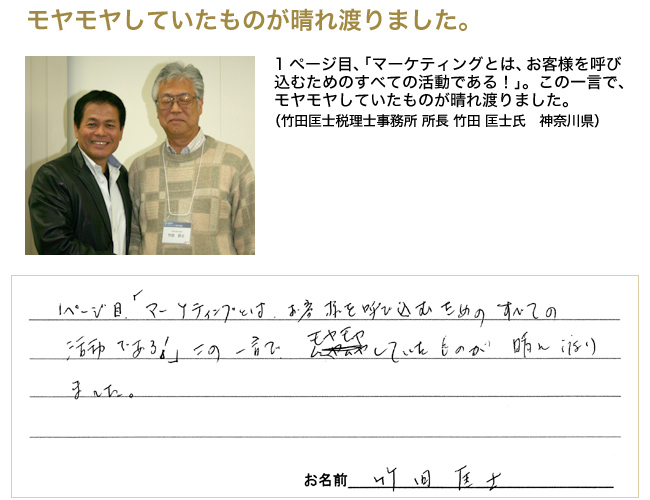 モヤモヤしていたものが晴れ渡りました。
1ページ目、「マーケティングとは、お客様を呼び
込むためのすべての活動である！」。この一言で、
モヤモヤしていたものが晴れ渡りました。
（竹田匡士税理士事務所 所長 竹田 匡士氏　神奈川県）
1ページ目、「マーケティングとは、お客様を呼び込むためのすべての
活動である！」この一言で モヤモヤしていたものが 晴れ渡り
ました。
お名前 竹田匡士